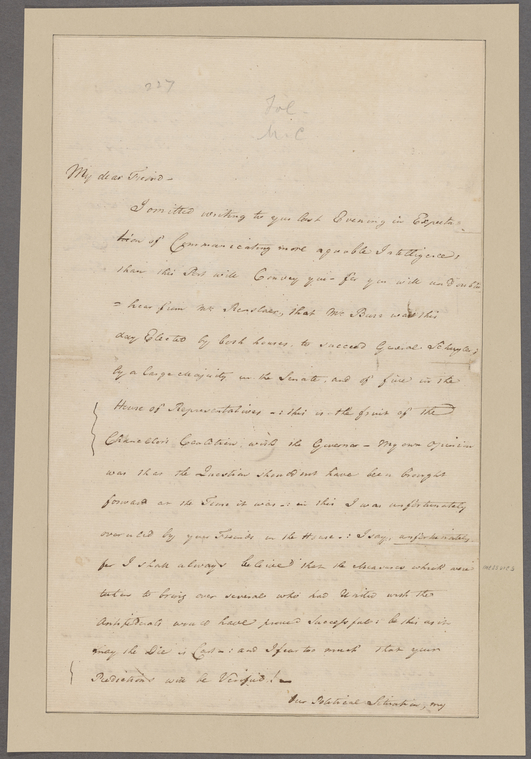 227
Fol-
My dear Friend -
I omitted writing to you last Evening in Expecta-
tion of Communicating more agreable Intelligence,
than this Post will Convey you - for you will undoubt-
hear from Mr Renslaer, that Mr Burr was this
day Elected by both houses, to succeed General Schuyler,
by a large Majority in the Senate, and of five in the
House of Representatives -: this is the fruit of the
Chancellors Coalition with the Governor - My own opinion
was that the Question should not have been brought
forward at the Time it was -: in this I was unfortunately
overuled by your Friends in the House -: I say, unfortunately
for I shall always believe that the Measures which were
taken to bring over several who had United with the
Antifederals would have proved Successful: be this as it
may the Die is Cast -: and I fear too much that your
Prediction will be Verified! -
Our Political Situation, my